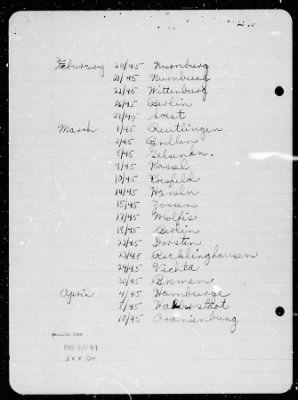 Feburary 20/45 Nurnburg
21/45 Nurnburg
22/45 Wittenburg
26/45 Berlin
28/45 Soest
March 1/45 Reutlingen
2/45
8/45 Gelsenkn.
9/45 Kassel
10/45 Koesfeld
14/45 Hameln
15/45 Zossen
17/45 Molfis
18/45 Berlin
22/45 Dorsten
23/45 Recklinghausen
24/45 Vechta
30/45 Bremen
April 4/45 Hamburge
/45 Halberstadt
10/45 Oranienburg